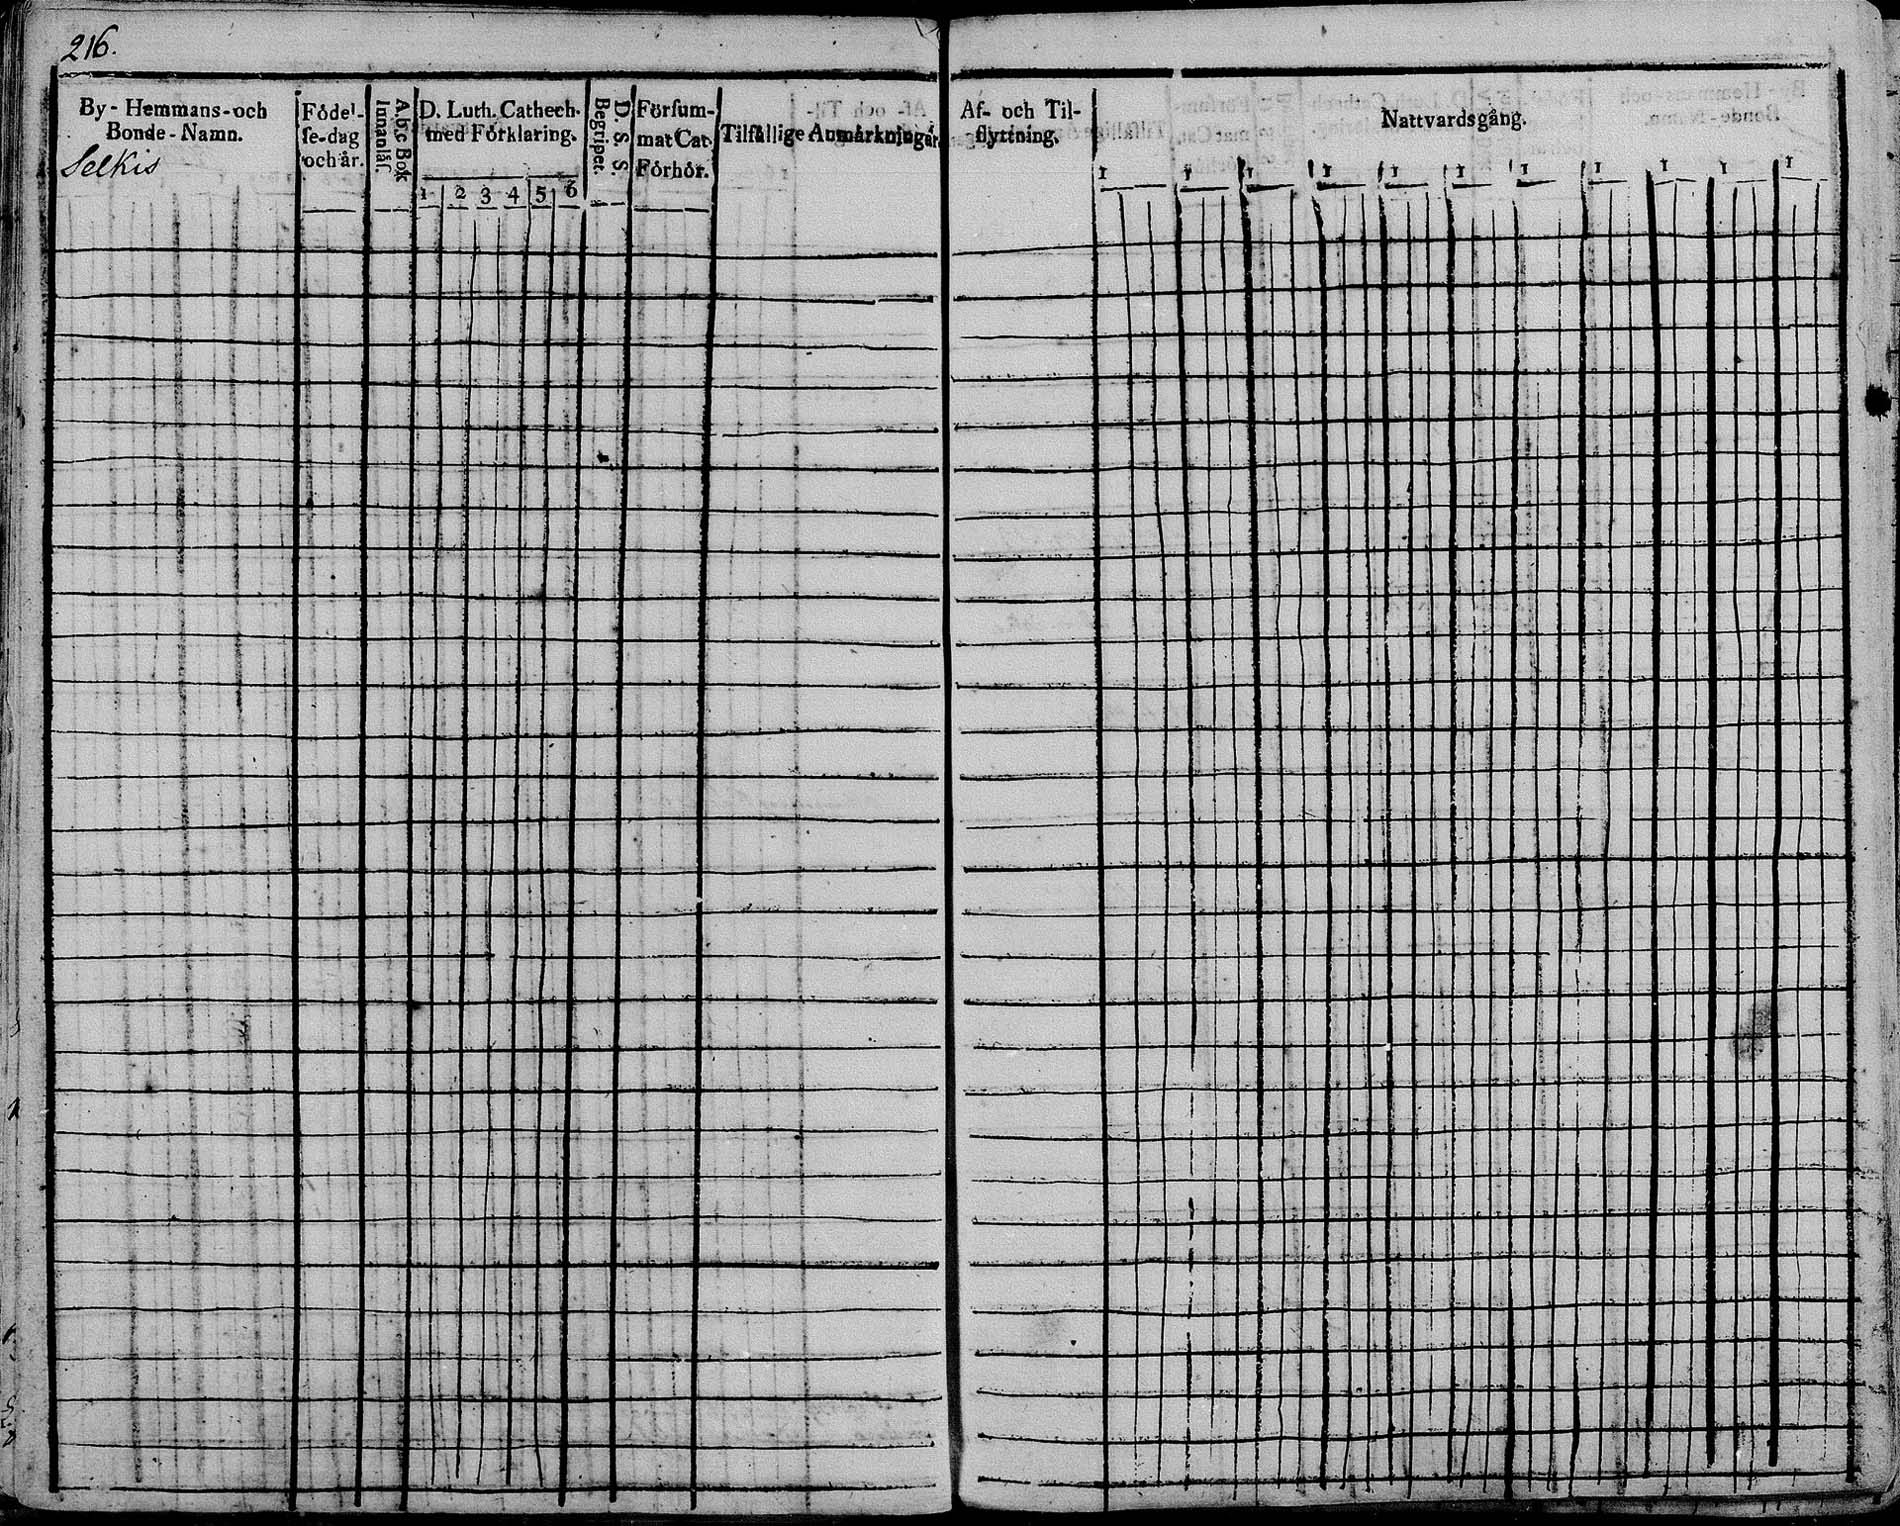 216.
By - Hemmans - och
Bonde - Namn.
Selkis
Födel-
se-dag
och år.
A b c Bok
Innanläs.
D. Luth. Cathech.
med Förklaring.
1 2 3 4 5 6
D. S. S.
Begriper.
Försum-
mat Cat.
Förhör.
Tilfällige Anmärkningar.
Af- och Til-
flyttning.
Nattvardsgång.
1 1 1 1 1 1 1 1 1 1 1